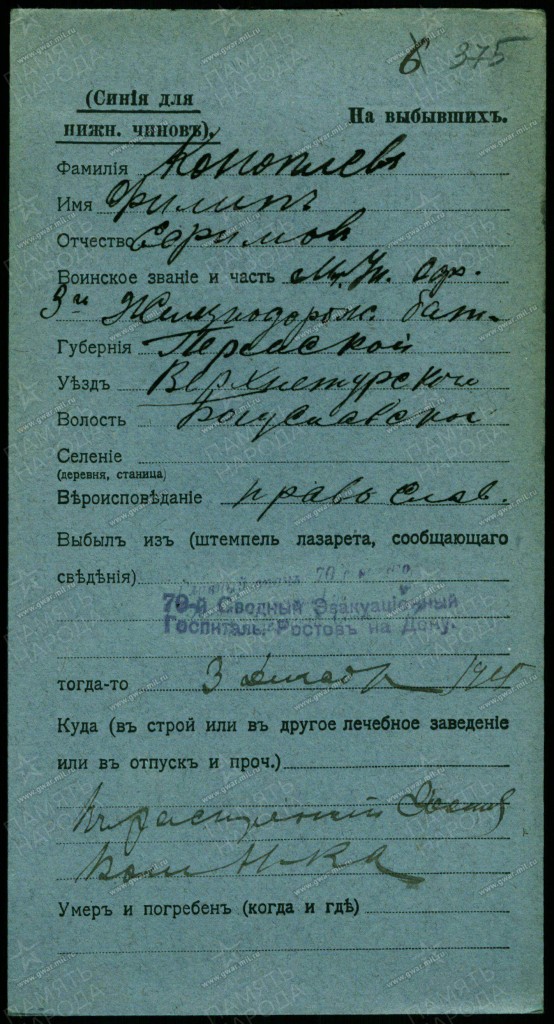 6 375
(Синія для
нижн. чиновъ).
На выбывшихъ.
Фамилія Коноплевъ
Имя Филипъ
Отчество Ефимов
Воинское званіе и часть Мл. Ун. Оф.
3й Железнодорож. бат.
Губернія Пермской
Уѣздъ Верхнетурского
Волость Богуславской
Селеніе
(деревня, станица)
Вѣроисповѣданіе православ.
Выбылъ из (штемпель лазарета, сообщающаго
свѣдѣнія)
79-й Сводный Эвакуаціонный
Госпиталь Ростовъ на Дону.
тогда-то 3 декабр 1915
Куда (въ строй или въ другое лечебное заведеніе
или въ отпускъ и проч.)
Въ распоряженій
Умеръ и погребенъ (когда и гдѣ)